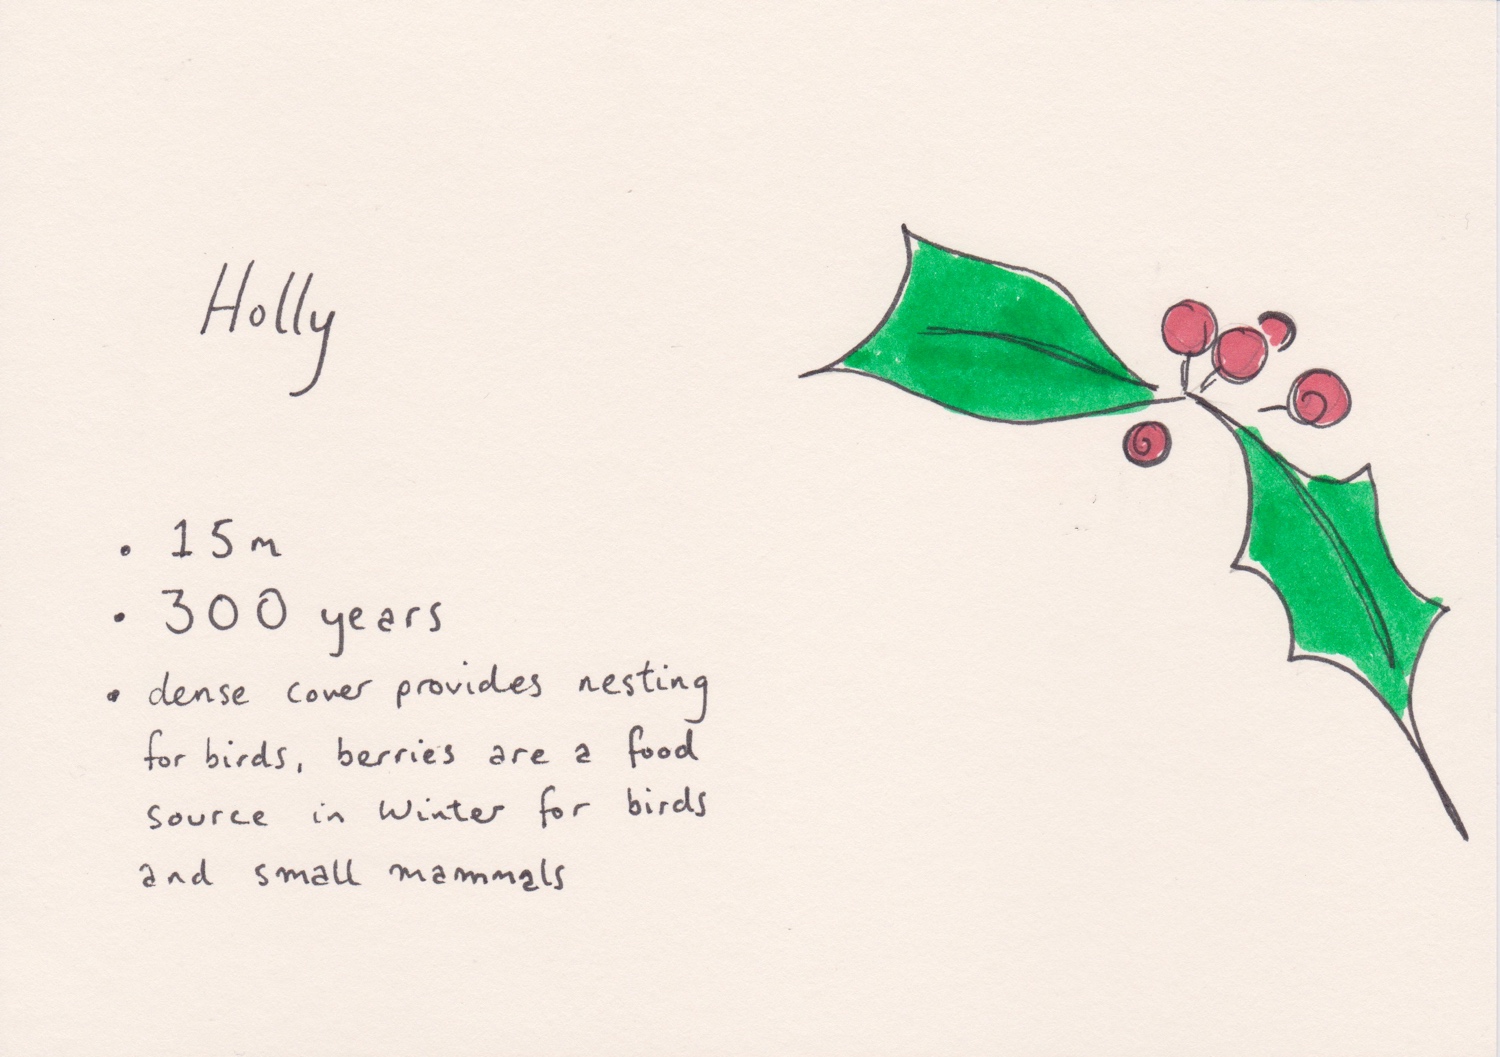 Holly
• 15m
• 300 years
• dense cover provides nesting
for birds, berries are a food
source in Winter for birds
and small mammals